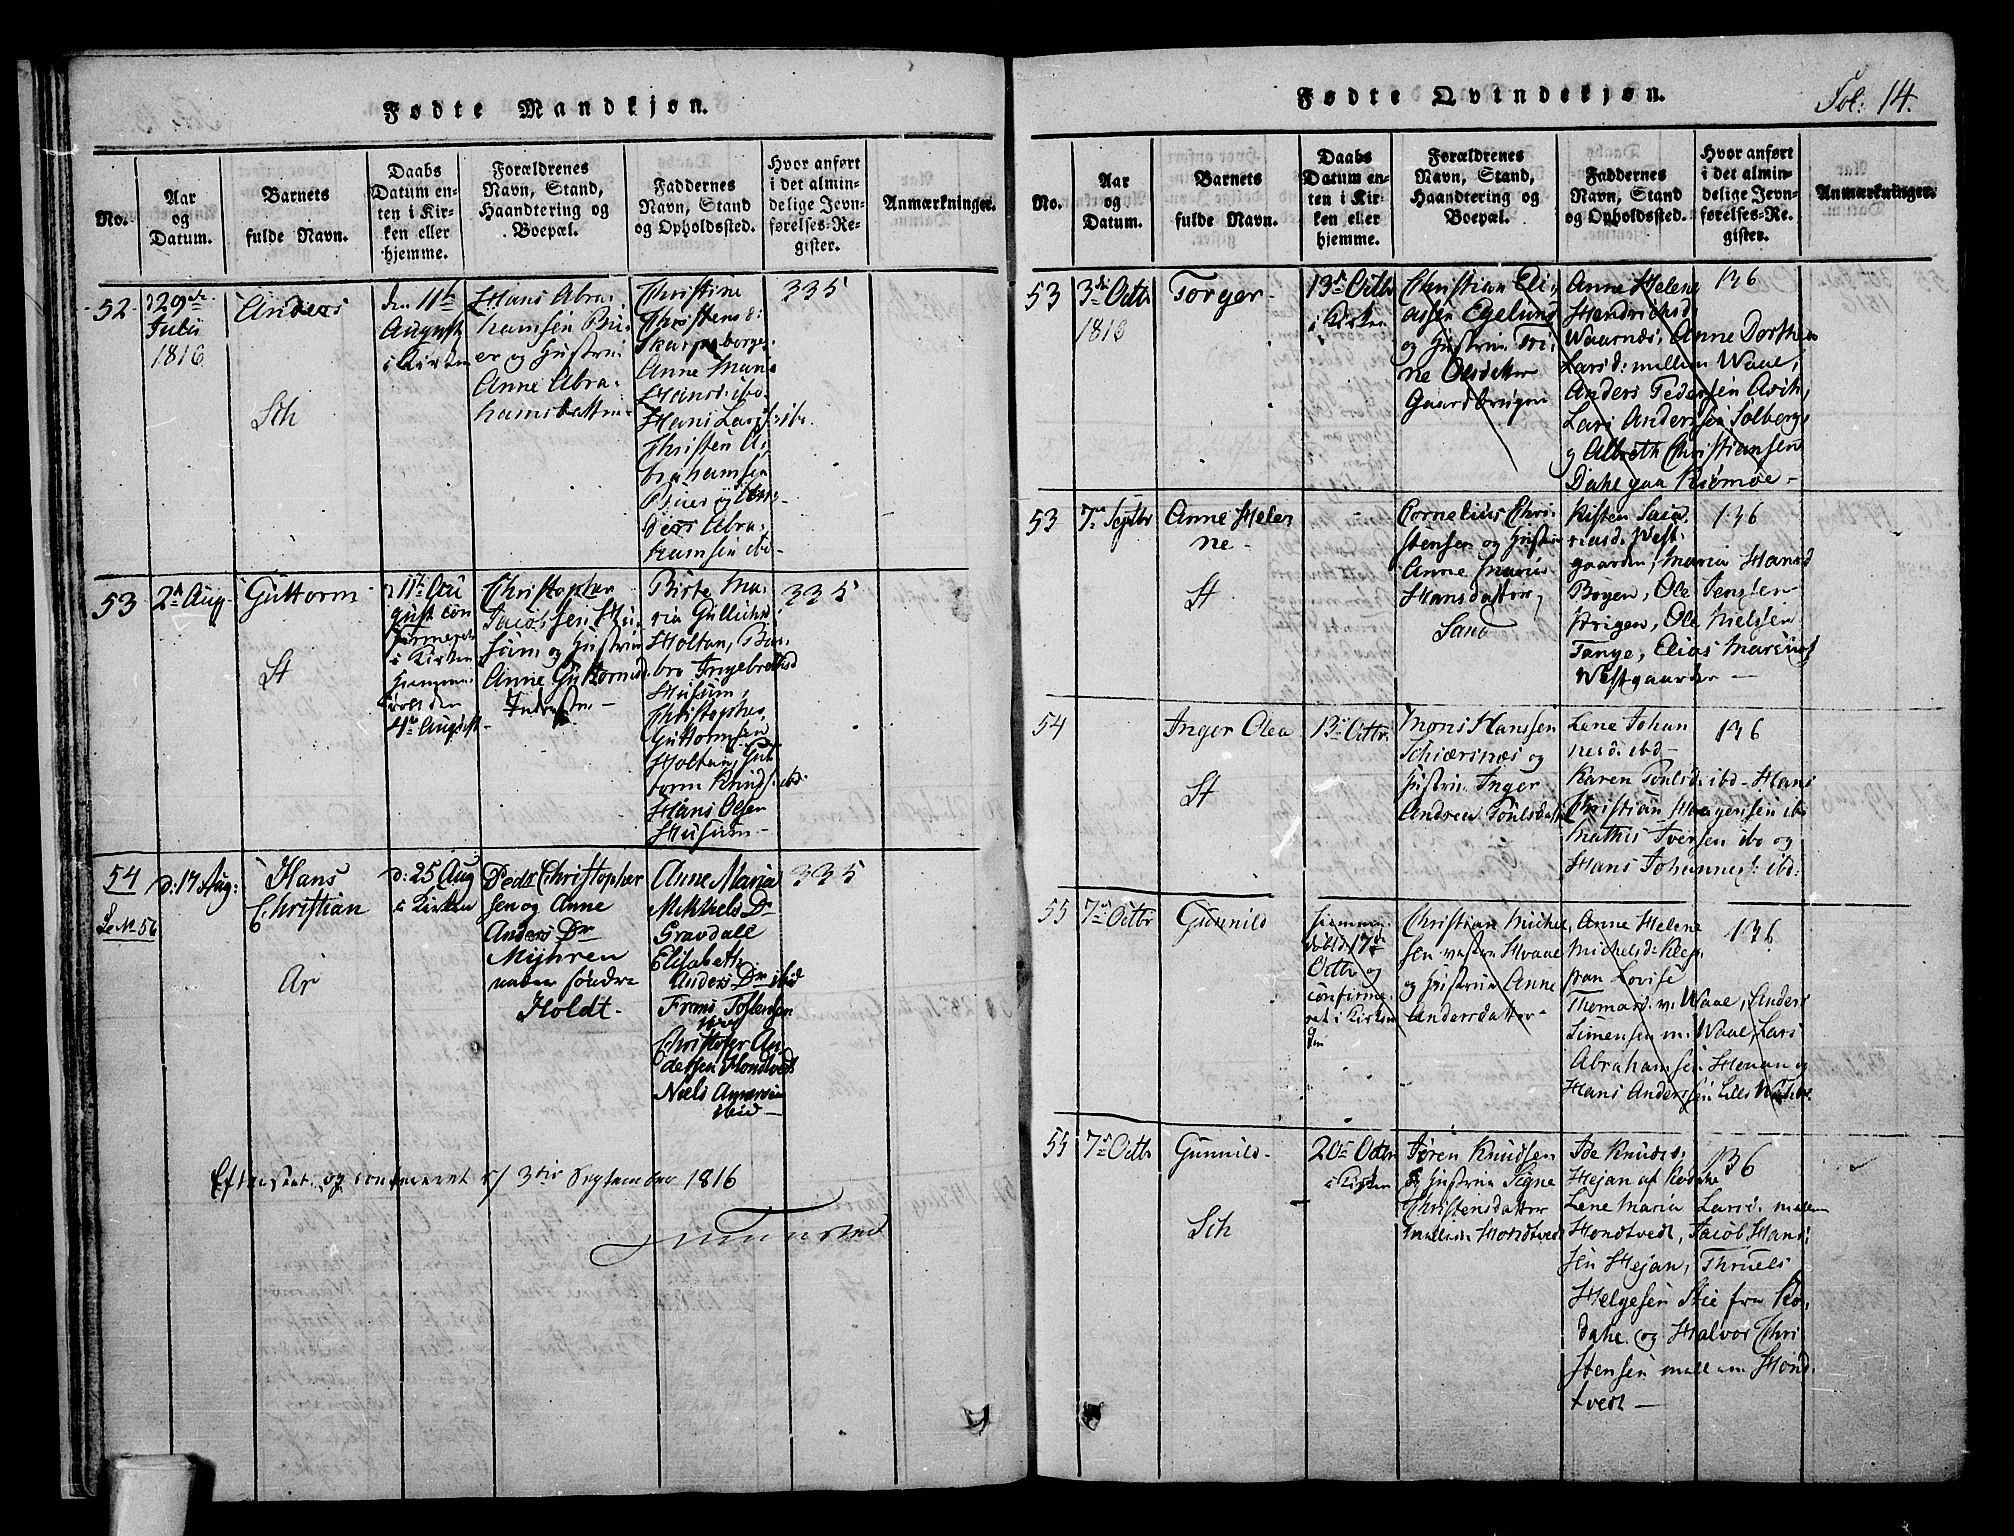 Fødte Mandkjøn.
No.
Aar
og
Datum.
Barnets
fulde Navn.
Daabs
Datum en-
ten i Kir-
ken eller
hjemme.
Forældrenes
Navn, Stand,
Haandtering og
Boepæl.
Faddernes
Navn, Stand
og Opholdssted.
Hvor anført
i det almin-
delige Jevn-
førelses-Re-
gister.
Anmærkninger.
52
d 29de
Julii
1816
Anders
Sch
den 11te
August
i Kirken
Hans Abra-
hamsen Bu-
er og Hustru
Anne Abra-
hamsdatter
Christine
Christensd:
Skarpsborge
Anne Marie
Hansd: ibd
Hans Lars: ibd.
Christen A-
brahamsen
Buer og An-
ders Abra-
hamsen ibd-
335
53
2d Aug
Guttorm
St
d 11te Au
gust con
firmeret
i Kirken
hjemme
døbt den
4de August
Christopher
Jacobsen Hu-
sum og Hustru
Anne Guttormsd
Birte Ma-
ria Gullichs
Holtan, Bar-
bro Ingebretsd
Husum,
Christopher
Guttormsen
Holtan, Gut
torm Knuds: ibd
Hans Olsen
Husum-
335
54
Se No 56
d: 17 Aug:
Hans
Christian
Ar
d: 25 Aug
i Kirken
Peder Christopher
sen og Anne
Anders Dr
Myhren
under søndre
Holdt-
Anne Maria
Mikkels Dr
Gravdall
Elisabeth
Anders Dr ibid
Frans Tostensen
Christofer An
dersen Hondtvedt
Niels Andersen
ibid
335
Efterseet og conformeret d 3die September 1816
Fødte Qvindekjøn.
Fol: 14.
No.
Aar
og
Datum.
Barnets
fulde Navn.
Daabs
Datum en-
ten i Kir-
ken eller
hjemme.
Forældrenes
Navn, Stand,
Haandtering og
Boepæl.
Faddernes
Navn, Stand
og Opholdssted.
Hvor anført
i det almin-
delige Jevn-
førelses-Re-
gister.
Anmærkninger.
53
3die Octbr
1816
Torger-
13de Octbr
i Kirken
Christian Eli-
assen Egelund
og Hustru Tri-
ne Olsdatter
Gaardbruger
Anne Helene
Hendrichsd
Waarnes, Anne Dorthea
Larsd: mellem Waae,
Anders Pedersen Asik,
Lars Anderssen Solberg
og Albreth Christiansen
Dahl paa Knømøe-
136
53
7de Septbr
Anne Hele-
ne-
St
Cornelius Chri-
stensen og Hustru
Anne Marie
Hansdatter,
Sand
Kisten Saca-
riasd: West-
gaarden, Maria Hansd
Bogen, Ole Jensen
Ørigen, Ole Nielsen
Tange, Elias Marcus
Westgaarden-
136
54
Inger Olea
St
13de Octbr
Mons Hanssen
Schiærsnes og
Hustru Inger
Andrea Poulsdatter
Lene Johan
nesd: ibd-
Karen Poulsd: ibd- Hans
Christian Haagensen ibd
Mathis Iversen ibd og
Hans Johannes: ibd:
136
55
7de Octbr
Gunnild
hjemme
døbt d 17de
Octbr og
confirme-
ret i Kirken
den
Christian Michel
sen vesten Hvaae
og Hustru Anne
Andersdatter-
Anne Helene
Michelsd: Klep-
pan Lovise
Thomasd: v: Waae, Anders
Simensen m: Waae, Lars
Abrahamsen Henan og
Hans Anderssen Lille Waae.
136
55
7de Octbr
Gunnild-
Sch
20de Octbr
i Kirken
Søren Knudsen
og Hustru Signe
Christensdatter
mellem Hondtvedt
Ide Knudsd:
Hejan af Kodahl
Lene Maria Larsd: mellem
Hondtvedt, Jacob Hans-
sen Hejan, Thruels
Helgesen Skie fra Ko-
dahl og Halvor Chri-
stensen mellem Hond-
tvedt-
136